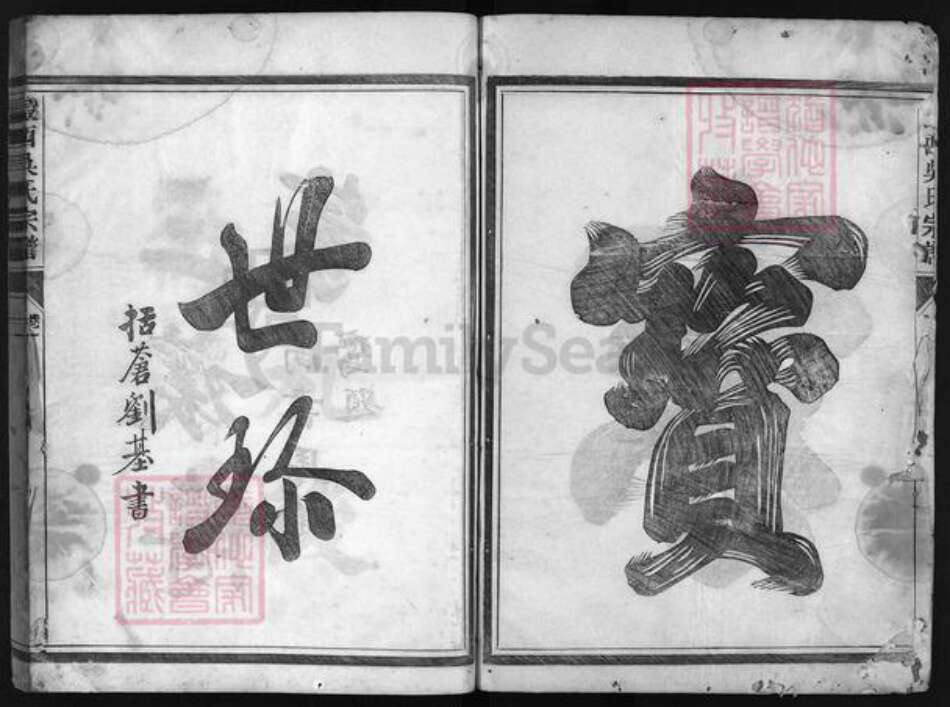 西吳氏宗譜
寶
世珎
括蒼劉基書
西吳氏宗譜
卷
猶他家
譜學會
收藏
猶他家
譜學會
收藏
FamilySea